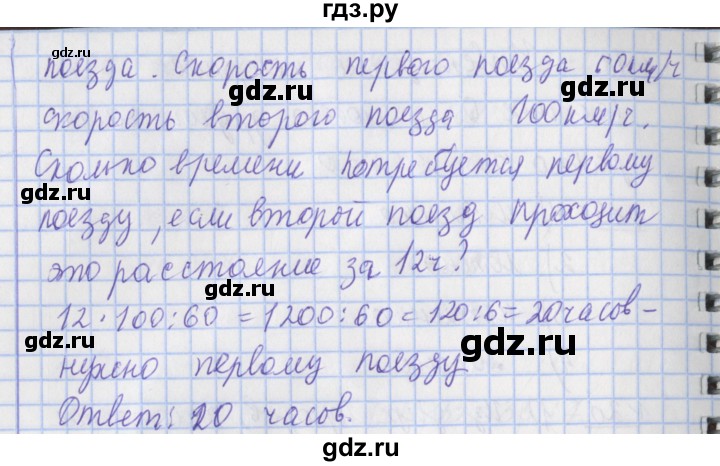 гдз.ру
поезда. Скорость первого поезда 60км/ч
скорость второго поезда 100км/ч.
Сколько времени потребуется первому
поезду, если второй поезд проходит
это расстояние за 12ч?
12·100:60=1200:60=120:6=20часов-
нужно первому поезду
Ответ: 20 часов.
gdz.ru
gdz.ru
gdz.ru
gdz.ru
gdz.ru
gdz.ru
gdz.ru
gdz.ru
gdz.ru
gdz.ru
gdz.ru
gdz.ru